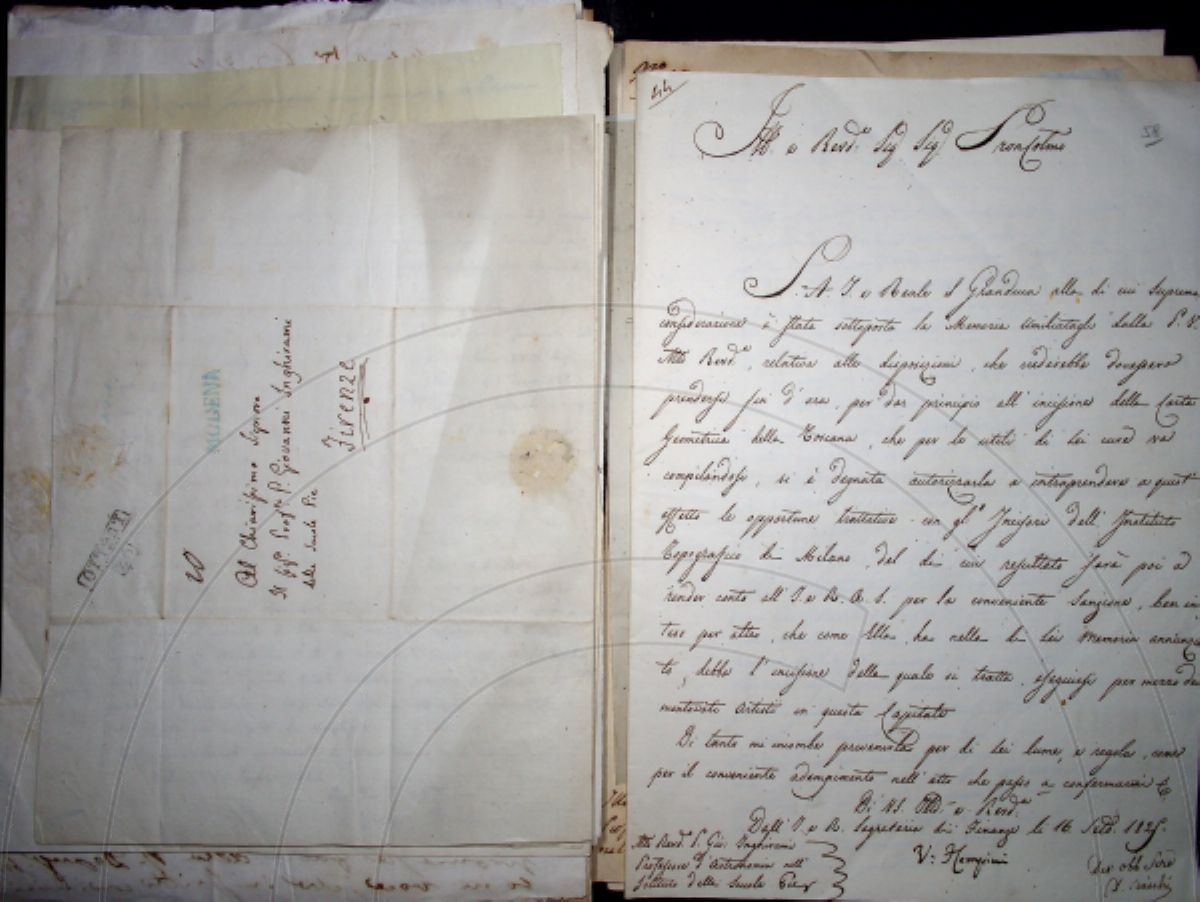 MODENA
20
Al Chiarissimo Signore
Il Sigr Profre P. Giovanni Inghirami
delle Scuole Pie
Firenze
44
58
Illo e Revdo Sig Sig Pron Colmo
S. A. I. e Reale il Granduca alla di cui Suprema
considerazione è stata sottoposta la Memoria umiliatagli dalla P. V.
Mto Revda, relativa alle disposizioni, che crederebbe dovessero
prendersi fin d'ora, per dar principio all'incisione della Carta
Geometrica della Toscana, che per le utili di lei cure va
compilandosi, si è degnata autorizzarla a intraprendere a quest'
effetto le opportune trattative con gl'Incisori dell'Instituto
Topografico di Milano, del di cui resultato sarà poi a
render conto all'I. e R. A. S. per la conveniente sanzione, ben in
teso per altro, che come Ella ha nella di lei Memoria annunzia
to, debba l'incisione della quale si tratta, eseguirsi per mezzo dei
mentovati Artisti in questa Capitale
Di tanto mi incombe prevenirla per di lei lume, e regola, come
per il conveniente adempimento nell'atto che passo a confermarmi
Di VS. Illa e Revda
Dall'I. e R. Segreteria di Finanze li 16 Setto. 1825.
Mto Revdo P. Gio. Inghirami
Professore d'Astronomia nell'
Istituto delle Scuole Pie
Dev obb Serv